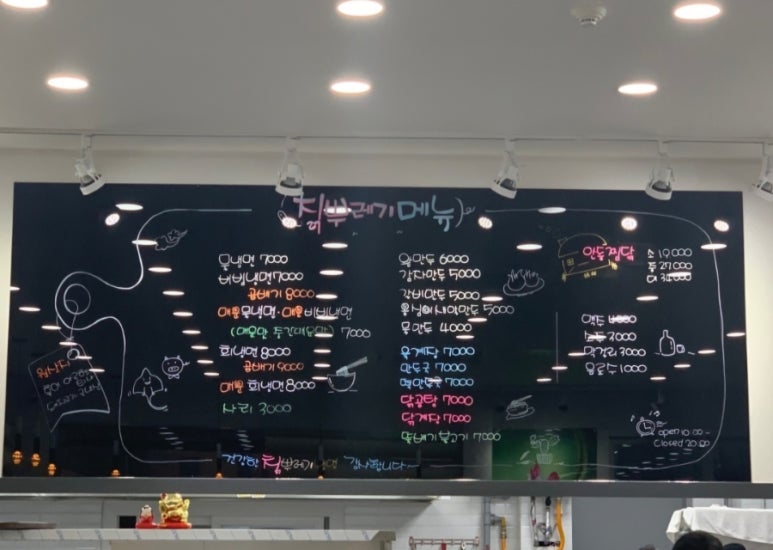 칡뿌레기 메뉴
물냉면 7000
비빔냉면 7000
곱빼기 8000
매콤 물냉면 · 매콤 비빔냉면
7000
회냉면 8000
곱빼기 9000
매콤 회냉면 8000
사리 3000
왕만두 6000
감자만두 5000
갈비만두 5000
5000
물만두 4000
육계탕 7000
만두국 7000
7000
닭곰탕 7000
닭계탕 7000
뚝배기 불고기 7000
안동찜닭
소 19000
중 27000
대 34000
맥주 4000
소주 3000
막걸리 3000
음료수 1000
open 10:00 ~
closed 20:00
원산지
건강한 칡뿌레기 감사합니다~